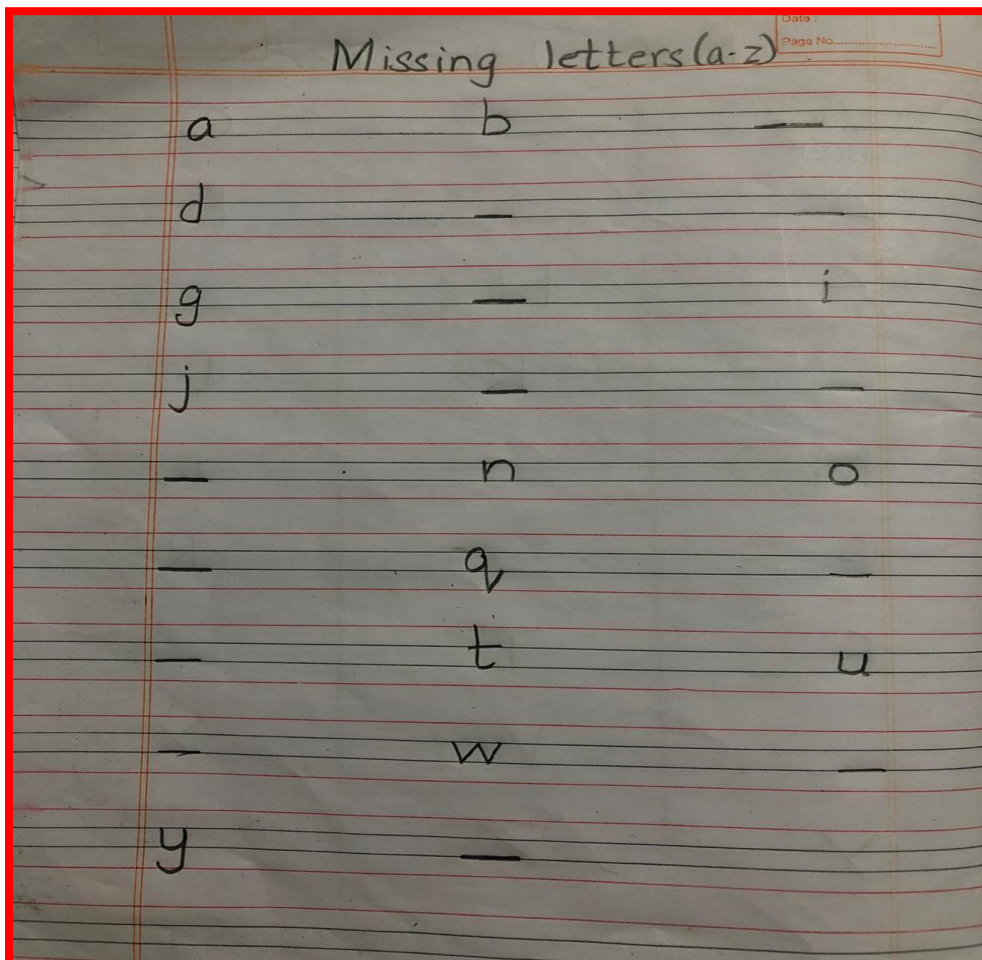 Date :
Page No.
Missing letters (a-z)
a b __
d __ __
g __ i
j __ __
__ n o
__ q __
__ t u
__ w __
y __